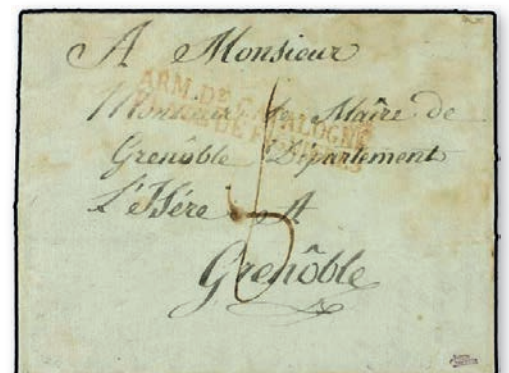 A Monsieur
ARM. DE CATALOGNE
Monsieur le Maire de
Grenôble Département
L'Isére A
Grenôble